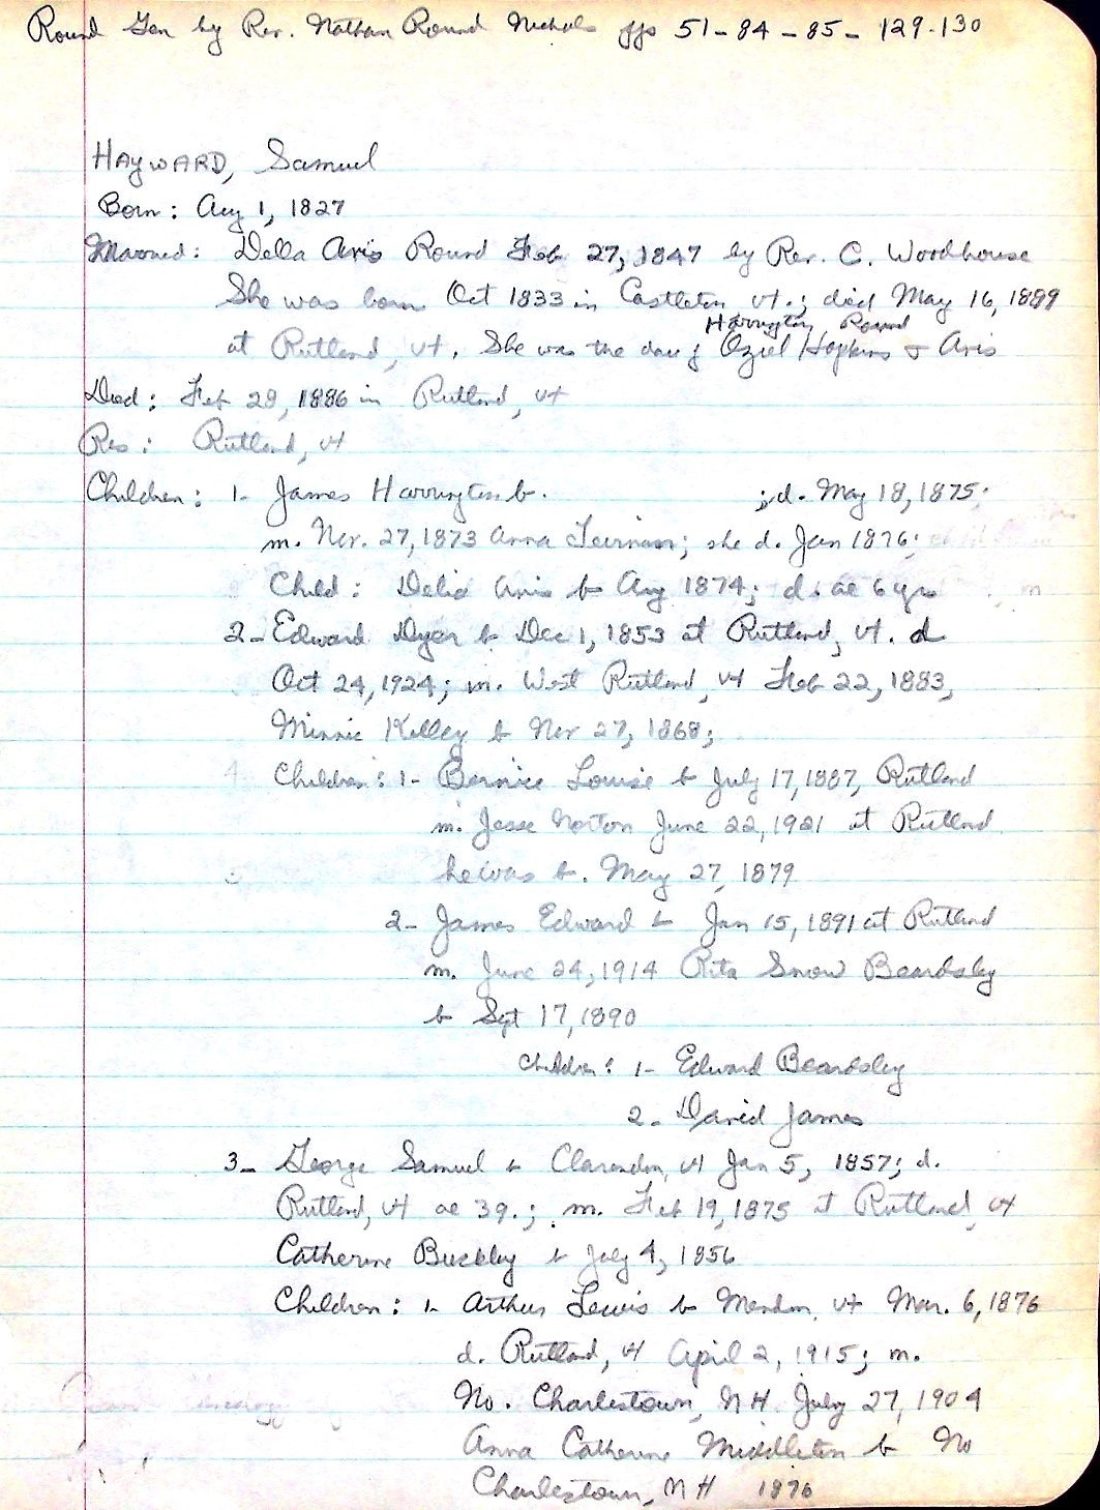 Round Gen by Rev. Nathan Round Nichols pgs 51-84-85-129-130
HAYWARD, Samuel
Born: Aug 1, 1827
Married: Della Avis Round Feb 27, 1847 by Rev. C. Woodhouse
She was born Oct 1833 in Castleton Vt.; died May 16, 1889
Harrington Round
at Rutland, Vt. She was the dau of Oziel Hopkins & Avis
Died: Feb 28, 1886 in Rutland, Vt
Res: Rutland, Vt
Children: 1- James Harrington b. ; d. May 18, 1875;
m. Nov. 27, 1873 Anna ; she d. Jan 1876;
Child: Delia Avis b Aug 1874; d. ae 6 yrs
2- Edward Dyer b Dec 1, 1853 at Rutland, Vt. d
Oct 24, 1924; m. West Rutland, Vt Feb 22, 1883,
Minnie Kelley b Nov 27, 1868;
Children: 1- Bernice Louise b July 17, 1887, Rutland
m. Jesse Norton June 22, 1921 at Rutland
he was b. May 27, 1879
2- James Edward b Jan 15, 1891 at Rutland
m. June 24, 1914 Rita Snow Beardsley
b Sept 17, 1890
Children: 1- Edward Beardsley
2- David James
3- George Samuel b Clarendon, Vt Jan 5, 1857; d.
Rutland, Vt ae 39.; m. Feb 19, 1875 at Rutland, Vt
Catherine Buckley b July 4, 1856
Children: 1- Arthur Lewis b Mendon, Vt Mar. 6, 1876
d. Rutland, Vt April 2, 1915; m.
No. Charlestown, NH July 27, 1904
Anna Catherine Middleton b No
Charlestown, NH 1876